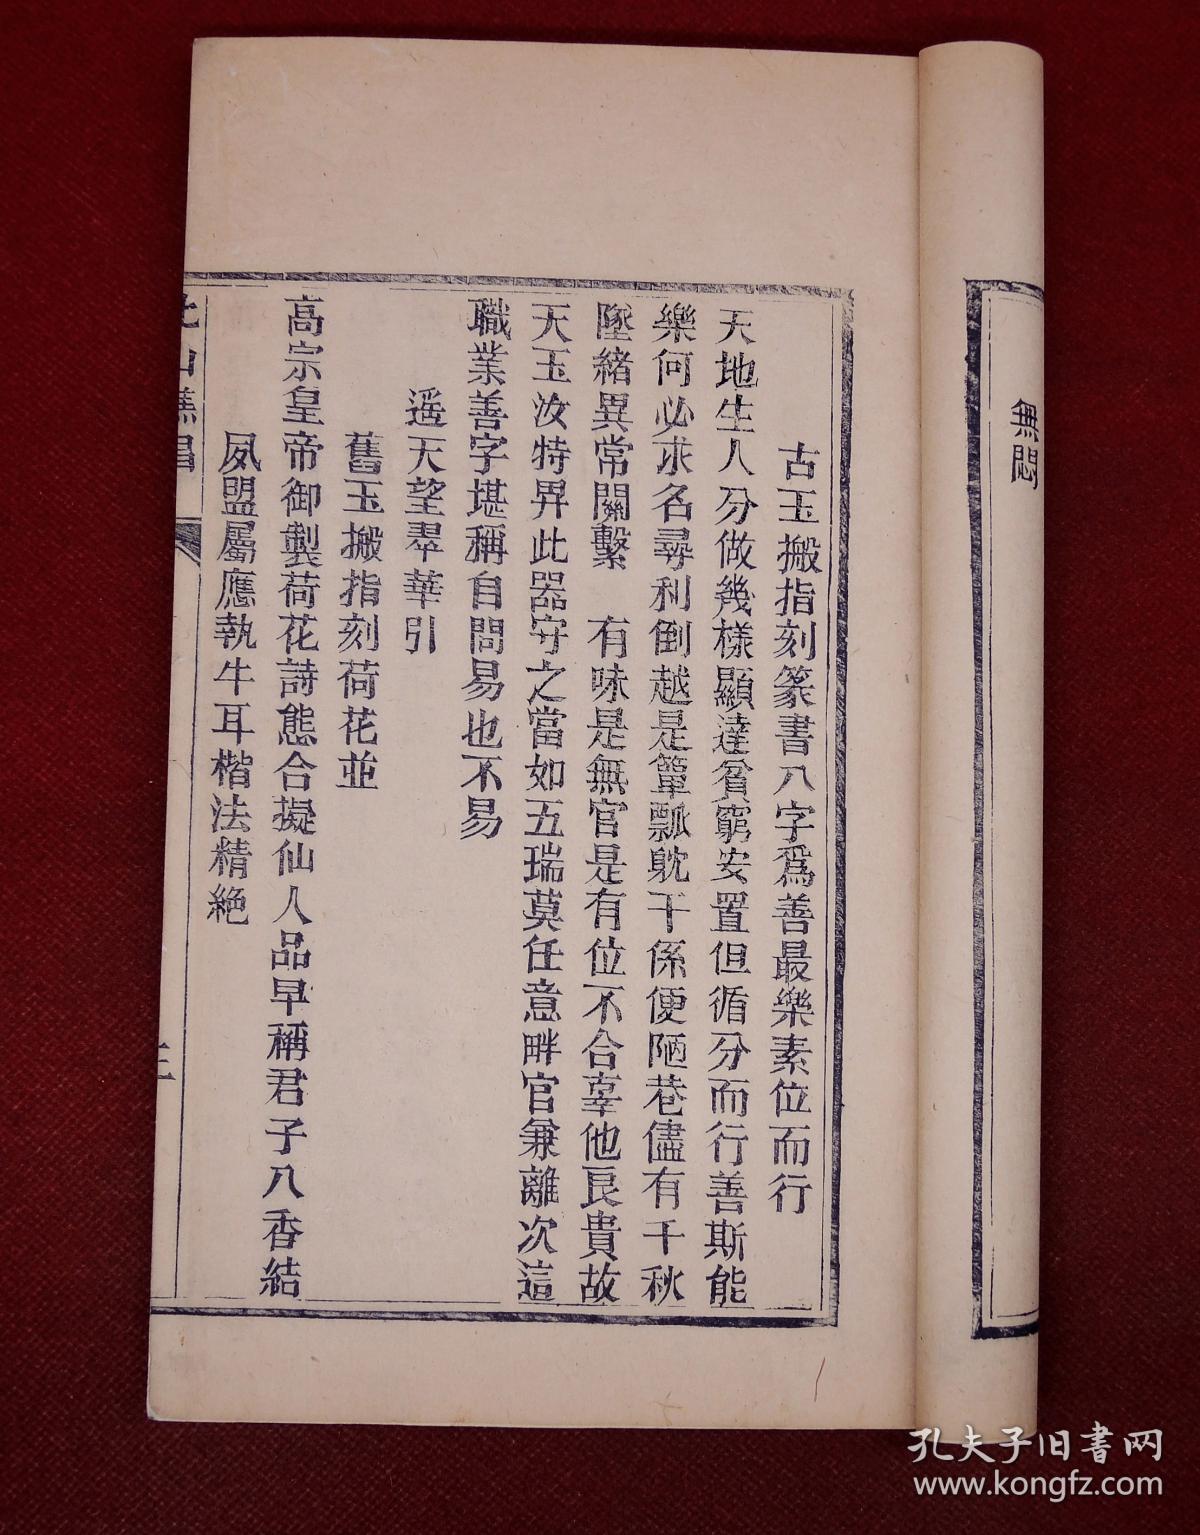 無悶
古玉搬指刻篆書八字爲善最樂素位而行
天地生人分做幾樣顯達貧窮安置但循分而行善斯能
樂何必求名尋利倒越是簞瓢躭干係便陋巷儘有千秋
墜緒異常關繫　有味是無官是有位不合辜他良貴故
天玉汝特畀此器守之當如五瑞莫任意畔官兼離次這
職業善字堪稱自問易也不易
遥天望翠華引
舊玉搬指刻荷花並
高宗皇帝御製荷花詩態合擬仙人品早稱君子八香結
夙盟屬應執牛耳楷法精絶
山樵唱
三
孔夫子旧書网
www.kongfz.com